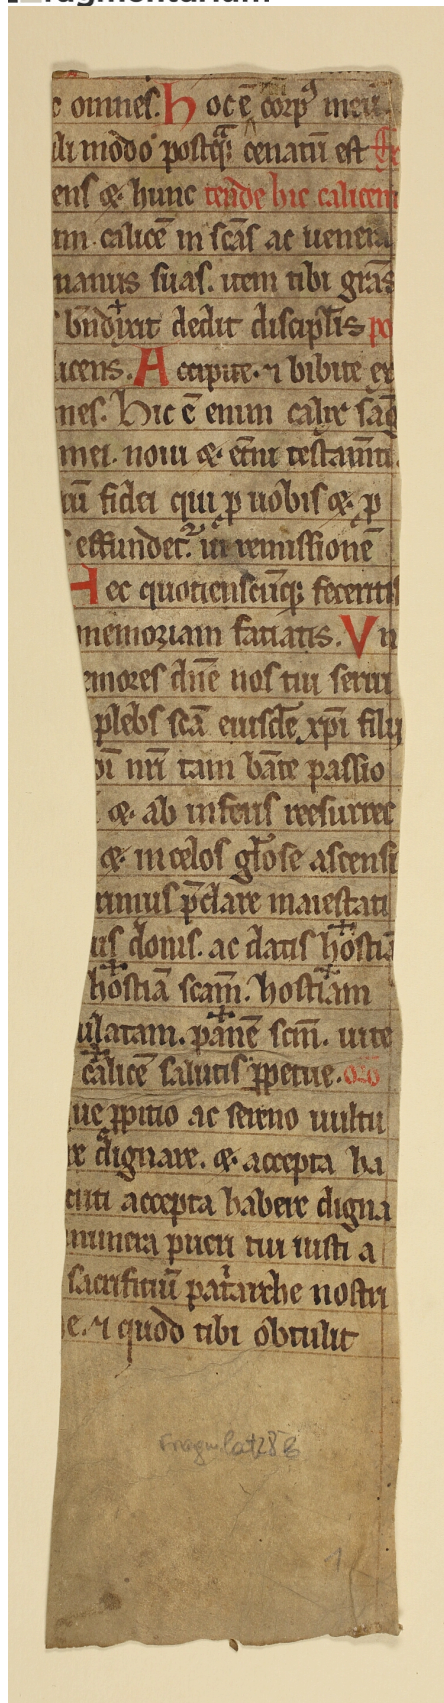 fragmentarium
e omnes. Hoc ē corpꝰ meū.
ili modo postqᷓ; cenatū est
ens & hunc tende hic calicem
um. calicē in scās ac uenera
manus suas. item tibi grās
bn̄dixit dedit discipl̄is po
icens. Accipite. ⁊ bibite ex
nes. Hic ē enim calix sāg
mei. noui & et̄ni testam̄ti.
iū fidei qui ꝑ uobis & ꝑ
effundet᷑ in remissionē
Hec quotienscūq; feceritis
memoriam faciatis. Vn
emores dn̄e nos tui serui
plebs scā eiusdē xp̄i filij
nr̄i tam bāte passio
& ab inferis reesurrec
& in celos gl̄ose ascensi
rimus p̄clare maiestati
uis donis. ac datis hostiā
hostiā scam̄. hostiam
ulatam. panē scm̄. uite
calicē salutis ꝑpetue.
ue ꝓpitio ac sereno uultu
re dignare. & accepta ha
icuti accepta habere digna
munera pueri tui iusti a
sacrificiū pat̄arche nostri
e. ⁊ quod tibi obtulit
Fragm. lat 28 B
1